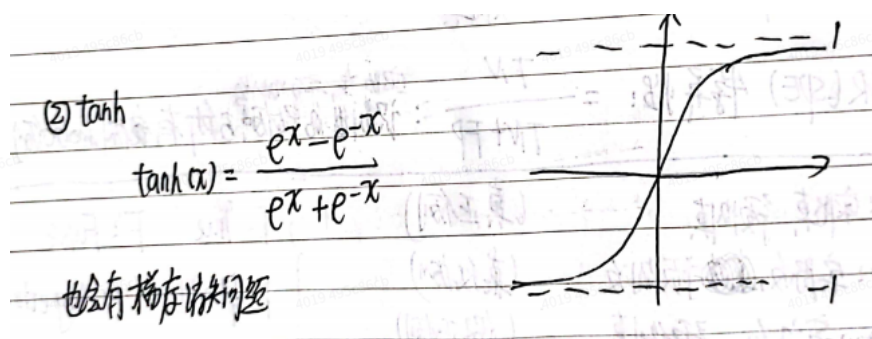 ② tanh
tanh(x) = \frac{e^x - e^{-x}}{e^x + e^{-x}}
也会有梯度消失问题
1
-1